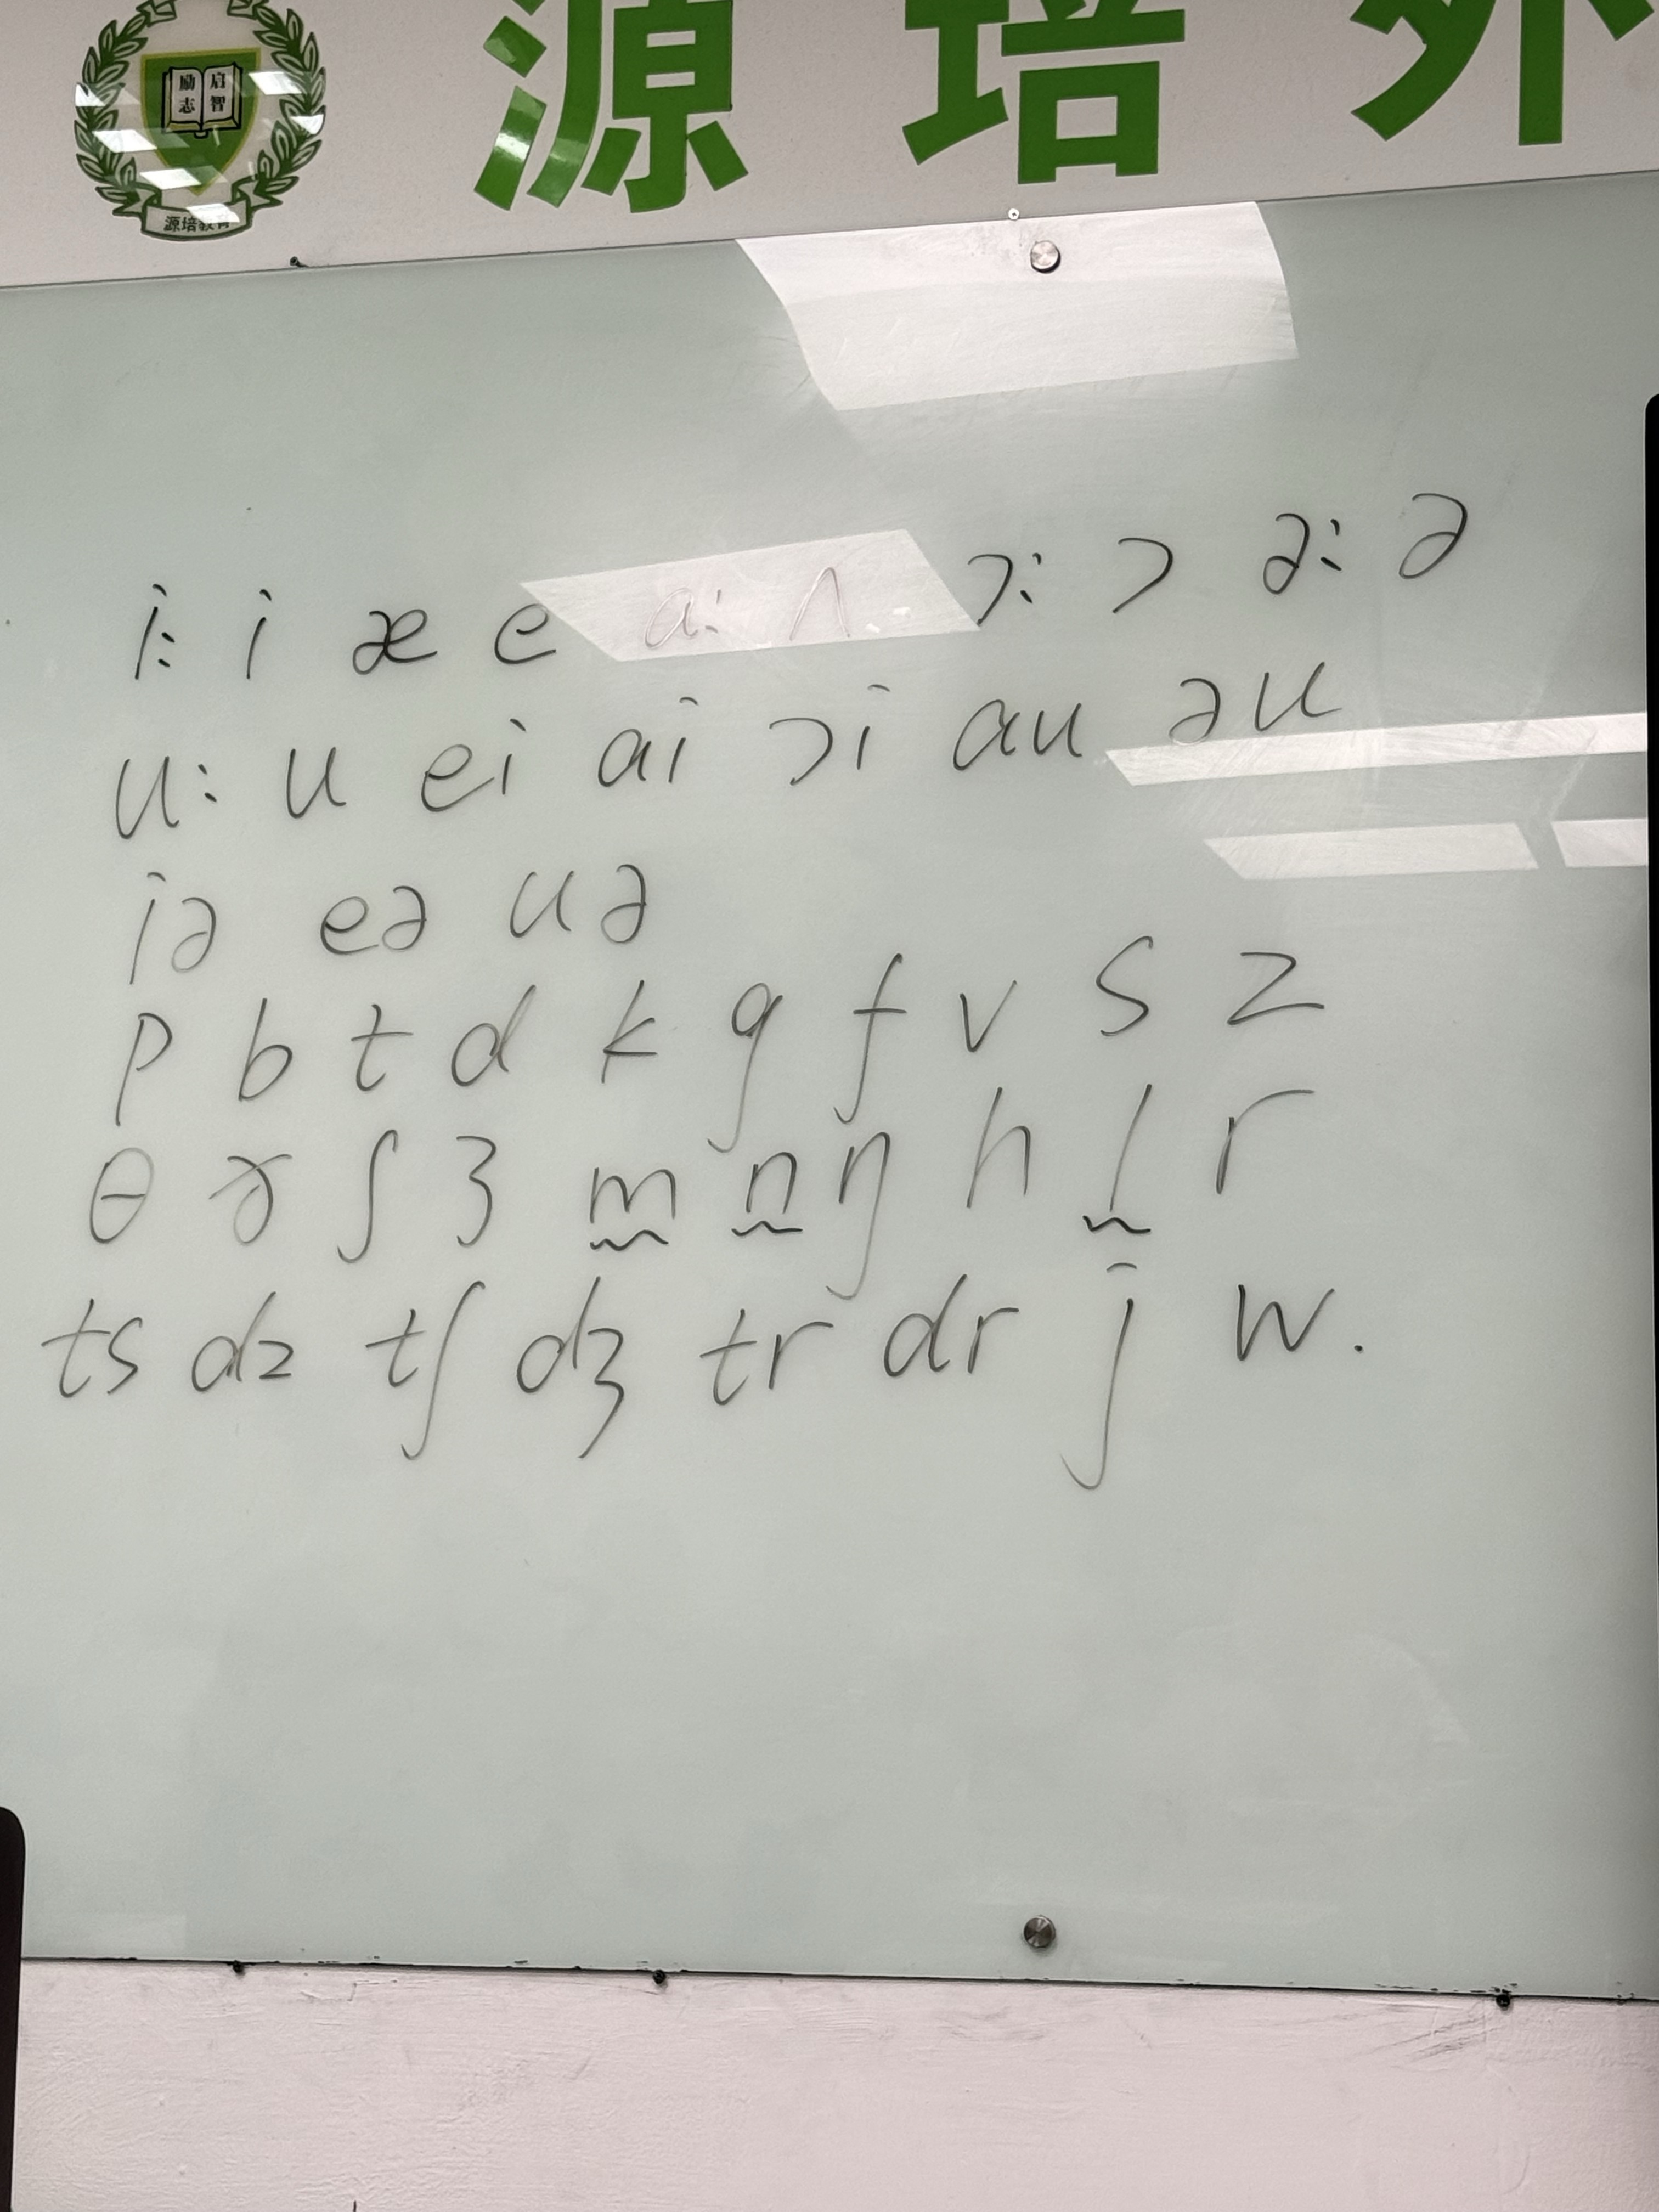 励志 启智
源培教育
源培外
i: i æ e a: ʌ ɔ: ɔ ə: ə
u: u ei ai ɔi au əu
iə eə uə
p b t d k g f v s z
θ ð ʃ ʒ m n ŋ h l r
ts dz tʃ dʒ tr dr j w.